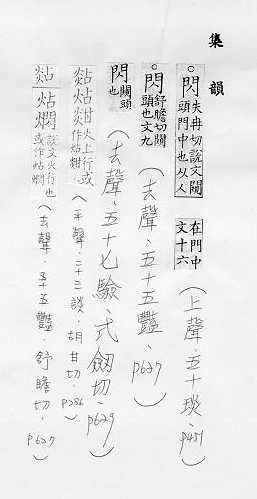 集韻
閃 失冉切說文闚頭門中也从人 在門中文十六 (上聲、五十琰、p451)
閃 舒贍切闚頭也文九 (去聲、五十五豔、p627)
閃 闚頭也 (去聲、五十七驗、式劒切、p629)
煔㷔炶 火上行或作炶 (平聲、二十三談、胡甘切、p286)
煔 炶焛 說文火行也或作炶焛 (去聲、五十五豔、舒贍切、p627)